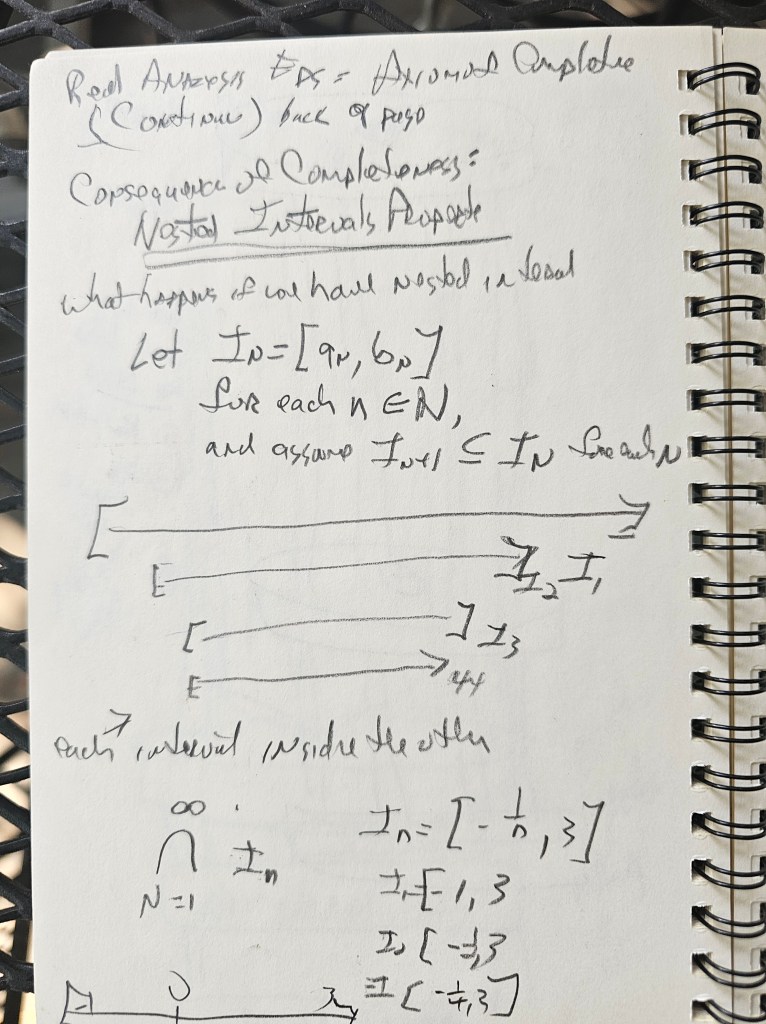 Real Analysis Eps = Axiom of Complete
(Continue) back of page
Consequence of Completeness:
Nested Intervals Property
what happens if we have nested interval
Let I_N = [a_N, b_N]
for each n ∈ N,
and assume I_N+1 ⊆ I_N for each N
[ ]
[ ] I_2 I_1
[ ] I_3
[
each interval inside the other
∞
∩ I_n
N=1
I_n = [-1/n, 3]
I_1 [-1, 3
I [-1/2, 3
I [-1/4, 3]
0 3